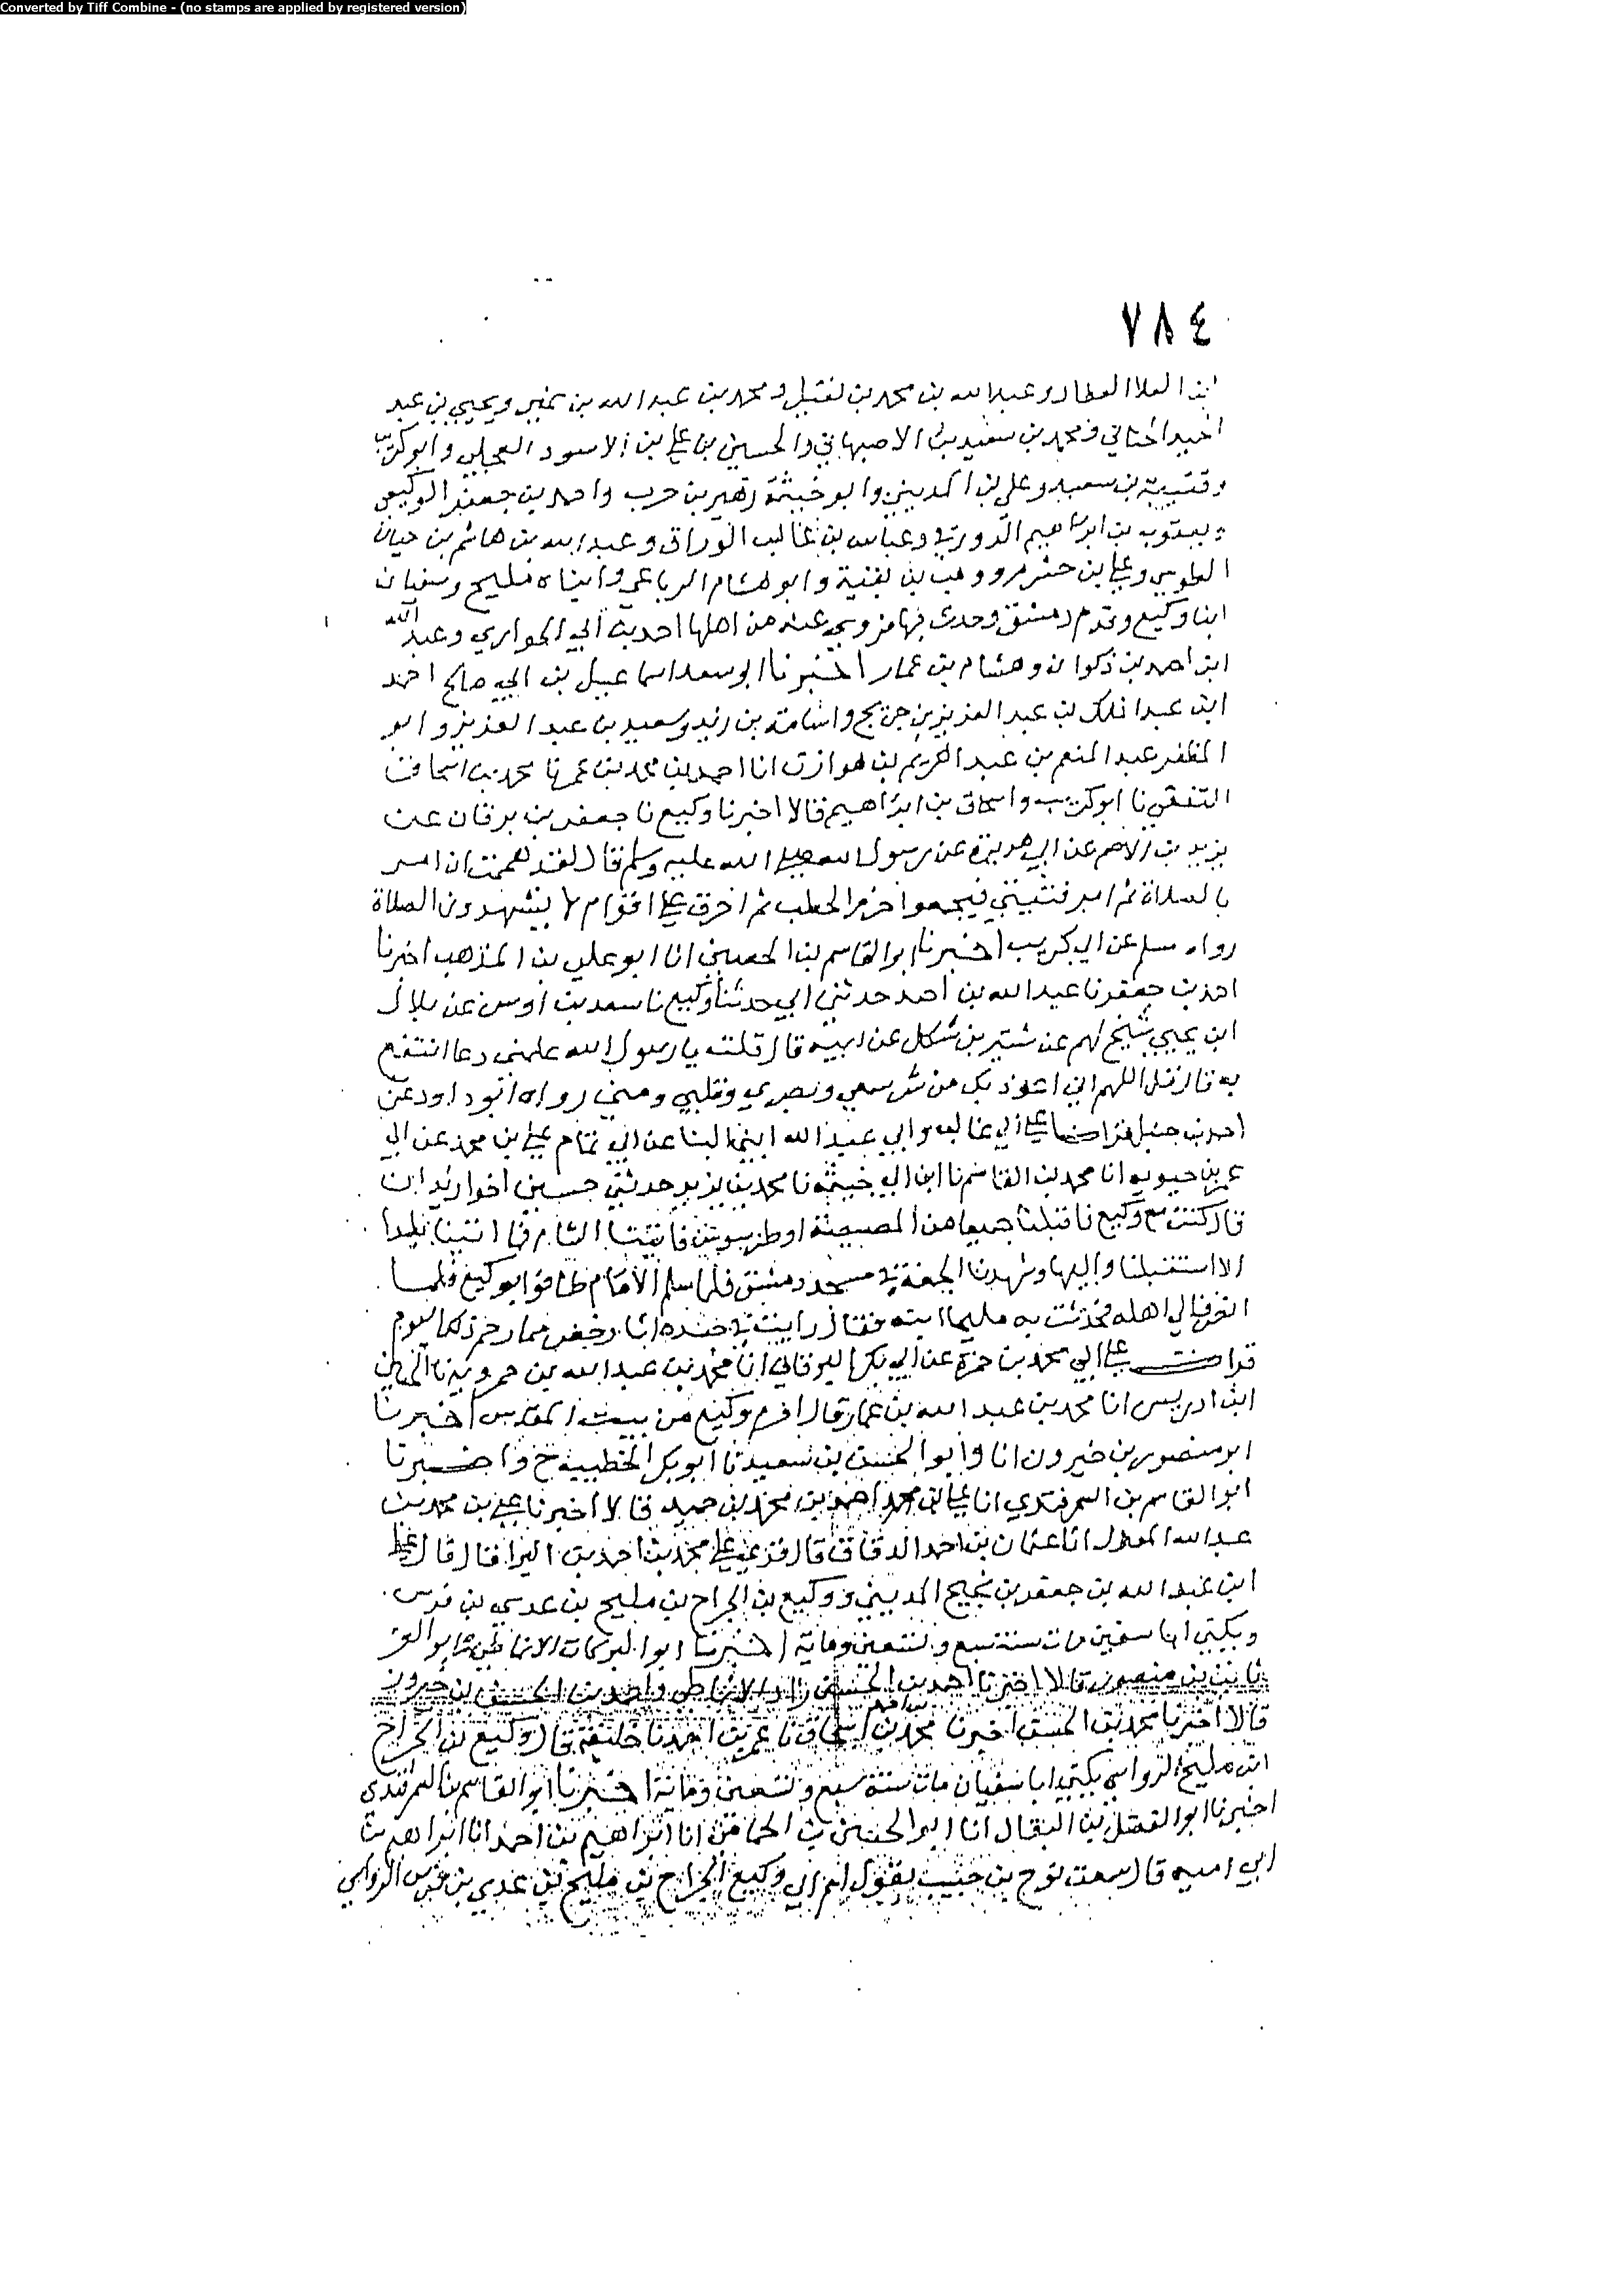 Converted by Tiff Combine - (no stamps are applied by registered version)
٧٨٤
ابن العلا العطار وعبد الله بن محمد بن نفيل ومحمد بن عبد الله بن نمير ويحيى بن عبد
الحميد الحماني ومحمد بن سعيد بن الاصبهاني والحسين بن علي بن الاسود العجلي وابو كريب
وقتيبة بن سعيد وعلي بن المديني وابو خيثمة زهير بن حرب واحمد بن جعفر الوكيعي
ويعقوب بن ابراهيم الدورقي وعباس بن غالب الوراق وعبد الله بن هاشم بن حيان
الطوسي وعلي بن خشرم ووهب بن بقية وابو هشام الرباعي وابناه مليح وسفيان
ابنا وكيع وقدم دمشق وحدث بها فروى عنه من اهلها احمد بن ابي الحواري وعبد الله
ابن احمد بن ذكوان وهشام بن عمار اخبرنا ابو سعد اسماعيل بن ابي صالح احمد
ابن عبد الملك بن عبد العزيز بن جريج واسامة بن زيد وسعيد بن عبد العزيز وابو
المظفر عبد المنعم بن عبد الكريم بن هوازن انا احمد بن محمد بن عمر نا محمد بن اسحاق
الثقفي نا ابو كريب واسحاق بن ابراهيم قالا اخبرنا وكيع نا جعفر بن برقان عن
يزيد بن الاصم عن ابي هريرة عن رسول الله صلى الله عليه وسلم قال لقد هممت ان امر
بالصلاة ثم امر فتيتي فيجمعوا حزم الحطب ثم احرق على اقوام لا يشهدون الصلاة
رواه مسلم عن ابي كريب اخبرنا ابو القاسم بن الحصين انا ابو علي بن المذهب اخبرنا
احمد بن جعفر نا عبد الله بن احمد حدثني ابي حدثنا وكيع نا سعد بن اوس عن بلال
ابن يحيى شيخ لهم عن شتير بن شكل عن ابيه قال قلت يا رسول الله علمني دعا انتفع
به قال قل اللهم اني اعوذ بك من شر سمعي وبصري وقلبي ومنيي رواه ابو داود عن
احمد بن حنبل قرات على ابي غالب وابي عبد الله ابني البنا عن ابي تمام علي بن محمد عن ابي
عمر بن حيويه انا محمد بن القاسم نا ابن ابي خيثمة نا محمد بن يزيد حدثني حسين اخو زيدان
قال كنت مع وكيع فاقبلنا جميعا من المصيصة او طرسوس فاتينا الشام فما اتينا بلدا
الا استقبلنا واليها وشهدنا الجمعة في مسجد دمشق فلما سلم الامام طافوا بوكيع فلما
انصرف الى اهله فحدثت به مليحا ابنه فقال رايت في جسده اثار خضر مما زحم ذلك اليوم
قرات على ابي محمد بن حمزة عن ابي بكر البرقاني انا محمد بن عبد الله بن خميرويه نا الحسين
ابن ادريس انا محمد بن عبد الله بن عمار قال احرم وكيع من بيت المقدس اخبرنا
ابو منصور بن خيرون انا وابو الحسن بن سعيد نا ابو بكر الخطيب ح واخبرنا
ابو القاسم بن السمرقندي انا علي بن محمد احمد بن محمد بن حميد قالا اخبرنا علي بن محمد بن
عبد الله المعدل انا عثمان بن احمد الدقاق قال قرئ على محمد بن احمد بن البرا قال قال علي
ابن عبد الله بن جعفر بن نجيح المديني ووكيع بن الجراح بن مليح بن عدي بن فرس
ويكنى ابا سفين مات سنة سبع وتسعين وماية اخبرنا ابو البركات الانماطي نا ابو العز
ثابت بن منصور قالا اخبرنا احمد بن الحسن زاد الانماطي واحمد بن الحسن بن خيرون
قالا اخبرنا محمد بن الحسن اخبرنا محمد بن اسحاق نا عمر بن احمد نا خليفة قال وكيع بن الجراح
ابن مليح الرواسي يكنى ابا سفيان مات سنة سبع وتسعين وماية اخبرنا ابو القاسم بن السمرقندي
اخبرنا ابو الفضل بن البقال انا ابو الحسن بن الحمامي انا ابراهيم بن احمد انا ابراهيم بن
ابي اميه قال سمعت نوح بن حبيب يقول وكيع الجراح بن مليح بن عدي بن فرس الرواسي